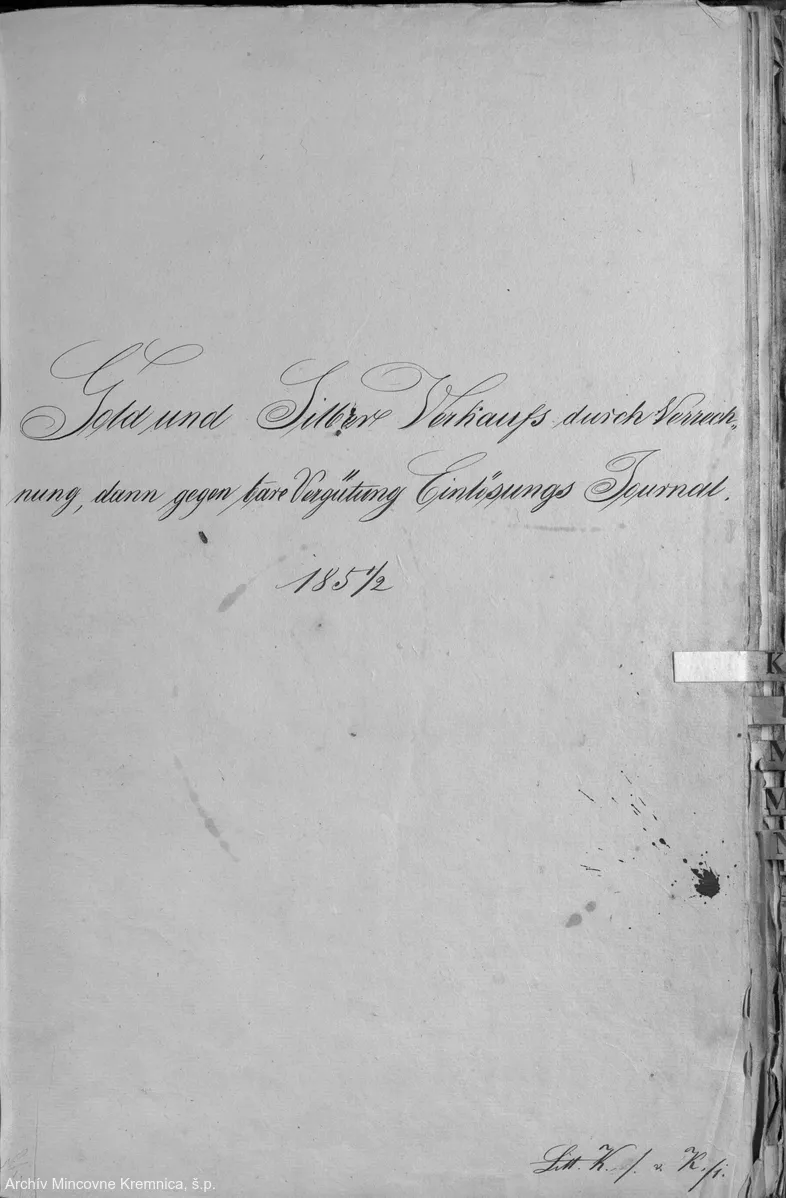 Gold und Silber Verkaufs durch Verrech„
nung, dann gegen bare Vergütung Einlösungs Journal.
185 1/2
K
M
M
N
Litt. K. f. v. K.
Archív Mincovne Kremnica, š.p.